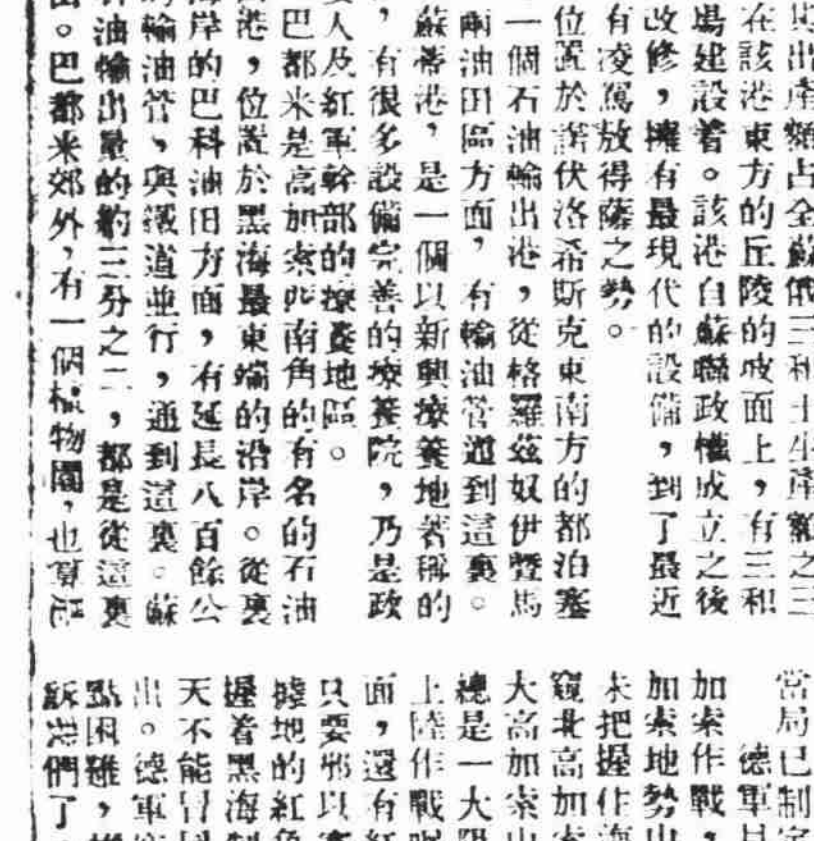 出產額占全蘇俄三和土生產額之三
在該港東方的丘陵的坡面上，有三和
場建設着。該港自蘇聯政權成立之後
改修，擁有最現代的設備，到了最近
有凌駕敖得薩之勢。
位置於諾伏洛希斯克東南方的都泊塞
一個石油輸出港，從格羅茲奴伊暨馬
兩油田區方面，有輸油管通到這裏。
蘇蒂港，是一個以新興療養地著稱的
，有很多設備完善的療養院，乃是政
人及紅軍幹部的療養地區。
巴都米是高加索西南角的有名的石油
港，位置於黑海最東端的沿岸。從裏
岸的巴科油田方面，有延長八百餘公
輸油管，與鐵道並行，通到這裏。蘇
油輸出量的約三分之二，都是從這裏
。巴都米郊外，有一個植物園，也算
當局已制定
德軍
加索作戰，
加索地勢
未把握住
窺北高加索
大高加索山
總是一大
上陸作戰
面，還有紅
只要
陸地的紅
握着黑海制
天不能冒
出。德軍
點困難，
訴他們了